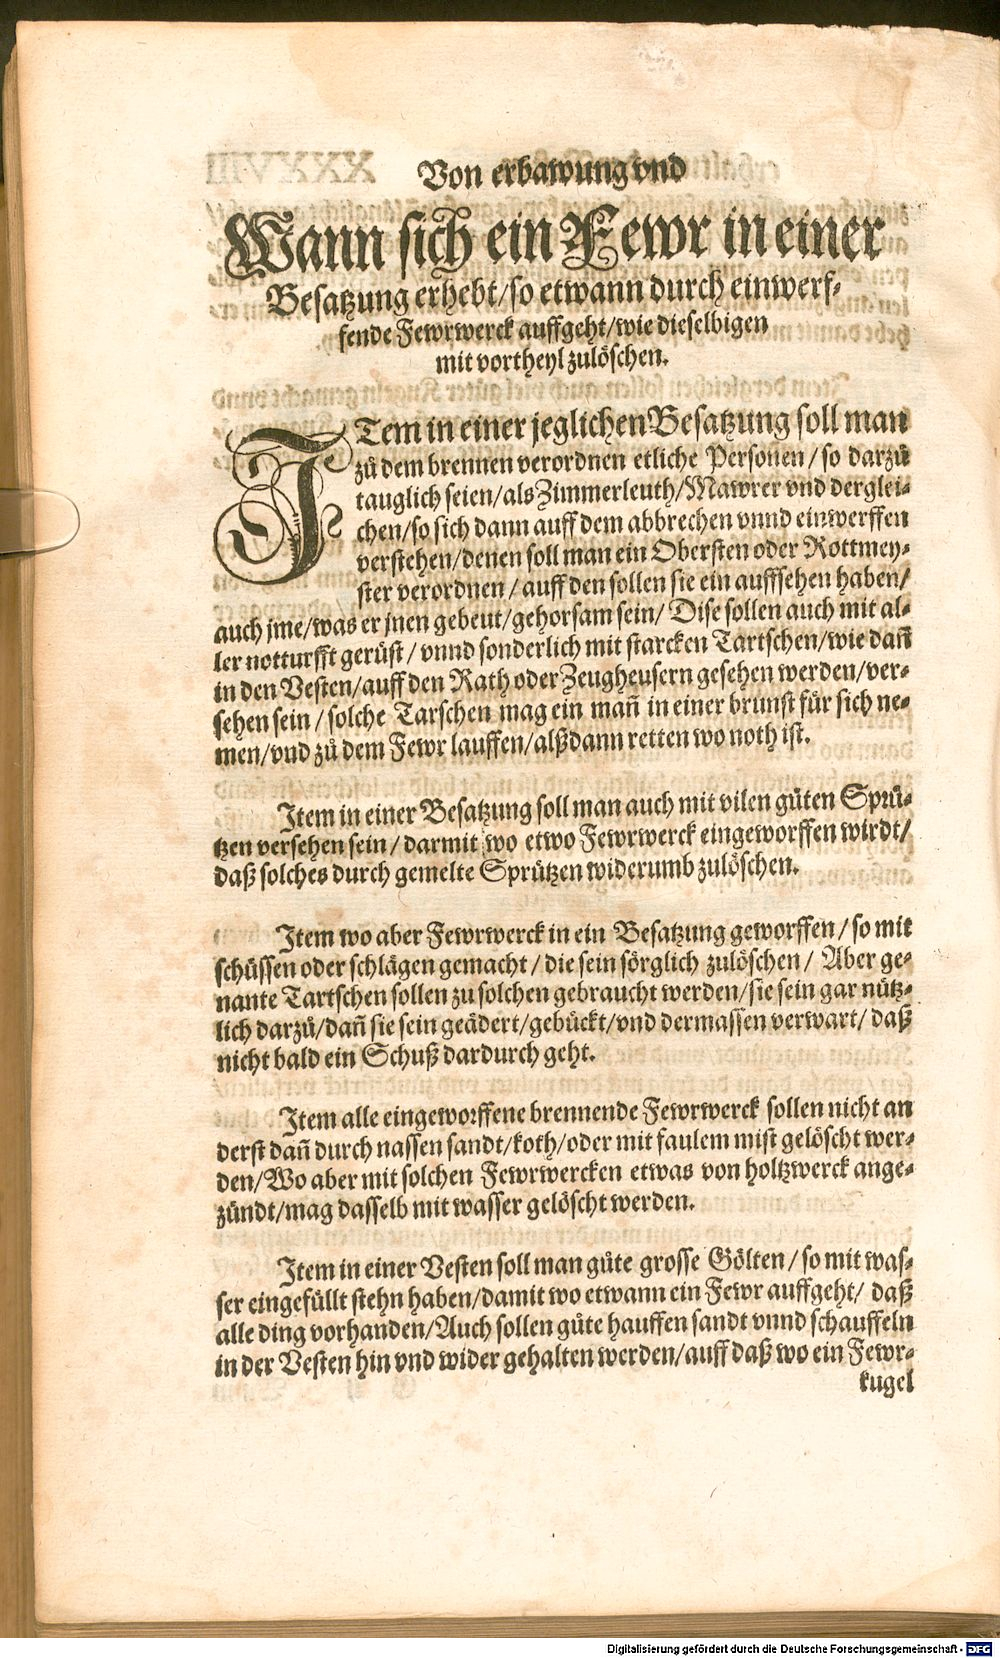 Von erbawung vnd
Wann sich ein Fewr in einer
Besatzung erhebt/so etwann durch einwerf-
fende Fewrwerck auffgeht/wie dieselbigen
mit vortheyl zulöschen.
ITem in einer jeglichen Besatzung soll man
zů dem brennen verordnen etliche Personen/so darzů
tauglich seien/als Zimmerleuth/Mawrer vnd derglei-
chen/so sich dann auff dem abbrechen vnnd einwerffen
verstehen/denen soll man ein Obersten oder Rottmey-
ster verordnen/auff den sollen sie ein auffsehen haben/
auch jme/was er jnen gebeut/gehorsam sein/Dise sollen auch mit al-
ler notturfft gerüst/vnnd sonderlich mit starcken Tartschen/wie dañ
in den Vesten/auff den Rath oder Zeugheusern gesehen werden/ver-
sehen sein/solche Tarschen mag ein mañ in einer brunst für sich ne-
men/vnd zů dem Fewr lauffen/alßdann retten wo noth ist.
Item in einer Besatzung soll man auch mit vilen gůten Sprü-
tzen versehen sein/darmit wo etwo Fewrwerck eingeworffen wirdt/
daß solches durch gemelte Sprützen widerumb zulöschen.
Item wo aber Fewrwerck in ein Besatzung geworffen/so mit
schüssen oder schlägen gemacht/die sein sörglich zulöschen/Aber ge-
nante Tartschen sollen zu solchen gebraucht werden/sie sein gar nütz-
lich darzů/dañ sie sein geädert/gebückt/vnd dermassen verwart/daß
nicht bald ein Schuß dardurch geht.
Item alle eingeworffene brennende Fewrwerck sollen nicht an
derst dañ durch nassen sandt/koth/oder mit faulem mist gelöscht wer-
den/Wo aber mit solchen Fewrwercken etwas von holtzwerck ange-
zündt/mag dasselb mit wasser gelöscht werden.
Item in einer Vesten soll man gůte grosse Gölten/so mit was-
ser eingefüllt stehn haben/damit wo etwann ein Fewr auffgeht/daß
alle ding vorhanden/Auch sollen gůte hauffen sandt vnnd schauffeln
in der Vesten hin vnd wider gehalten werden/auff daß wo ein Fewr-
kugel
Digitalisierung gefördert durch die Deutsche Forschungsgemeinschaft - DFG